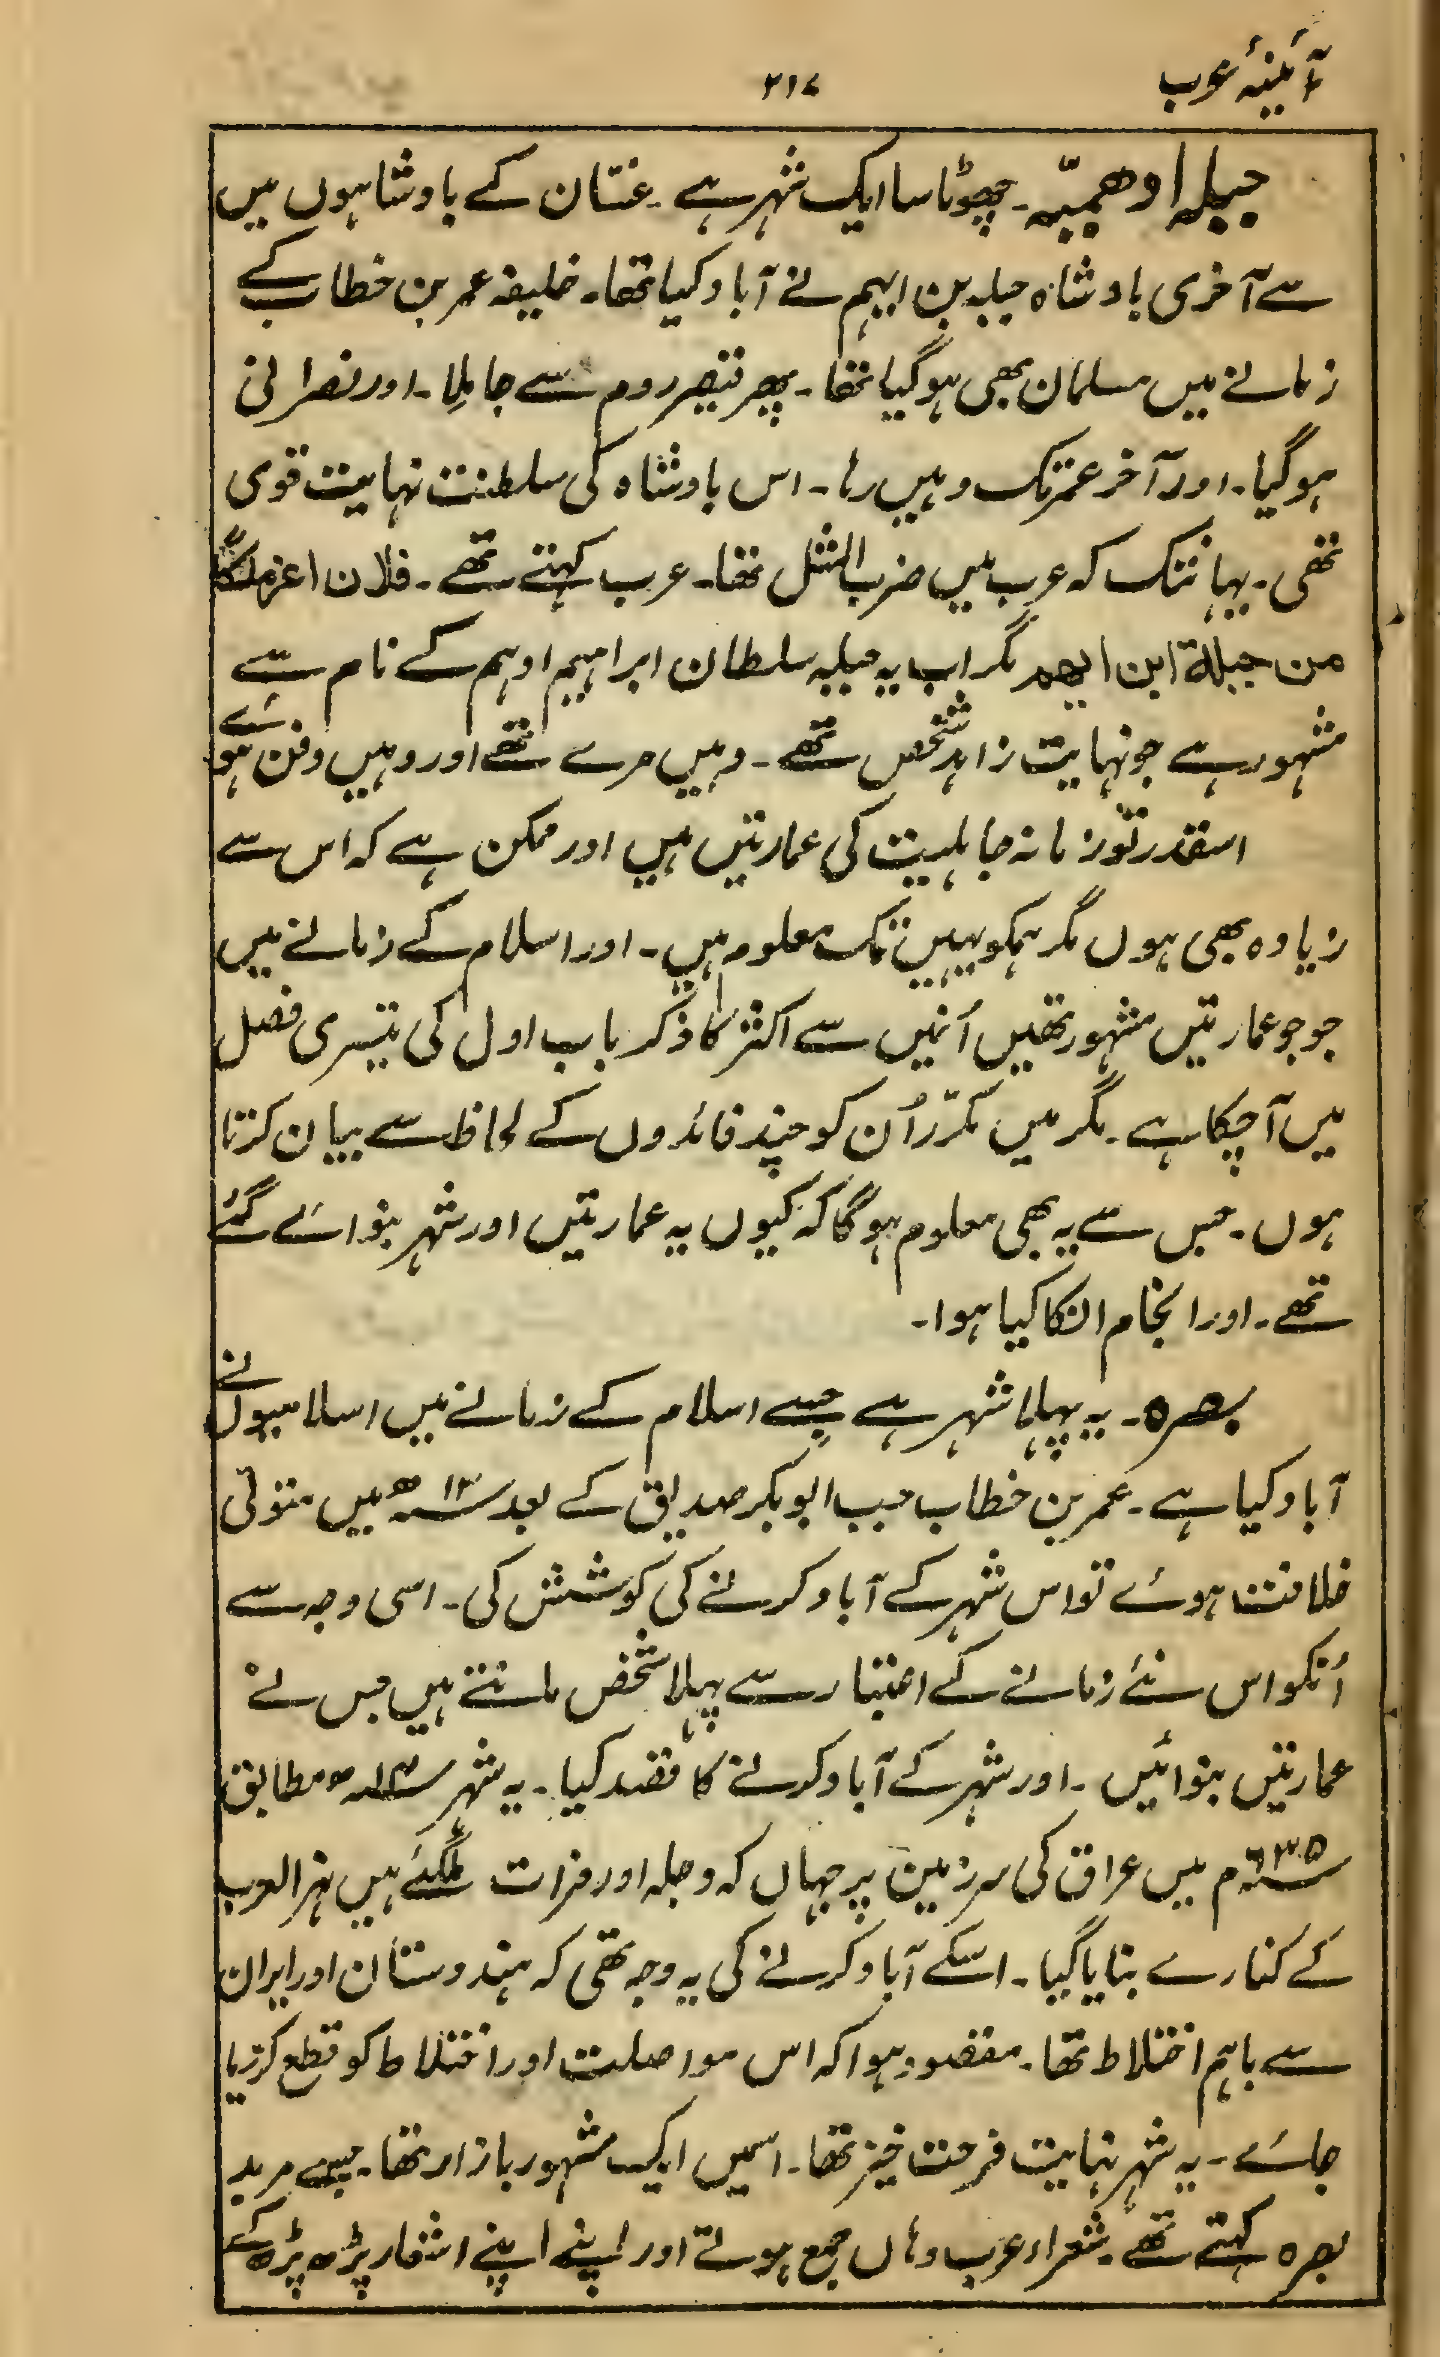 آئینۂ عرب
۲۱۷
جبلہ ادھمیّہ۔ چھوٹا سا ایک شہر ہے۔ غسّان کے بادشاہوں میں
سے آخری بادشاہ جبلہ بن ایہم نے آباد کیا تھا۔ خلیفہ عمر بن خطاب کے
زمانے میں مسلمان بھی ہوگیا تھا۔ پھر قیصر روم سے جا مِلا۔ اور نصرانی
ہوگیا۔ اور آخر عمر تک وہیں رہا۔ اس بادشاہ کی سلطنت نہایت قوی
تھی۔ یہانتک کہ عرب میں ضرب المثل تھا۔ عرب کہتے تھے۔ فلان اعز ملکًا
من جبلۃ ابن ایھم مگر اب یہ جبلہ سلطان ابراہیم ادہم کے نام سے
مشہور ہے جو نہایت زاہد شخص تھے۔ وہیں مرے تھے اور وہیں دفن ہوئے
اسقدر تو زمانہ جاہلیت کی عمارتیں ہیں اور ممکن ہے کہ اس سے
زیادہ بھی ہوں مگر ہمکو یہیں تک معلوم ہیں۔ اور اسلام کے زمانے میں
جو جو عمارتیں مشہور تھیں اُنمیں سے اکثر کا ذکر باب اول کی تیسری فصل
میں آچکا ہے۔ مگر میں مکرّر اُن کو چند فائدوں کے لحاظ سے بیان کرتا
ہوں۔ جس سے یہ بھی معلوم ہوگا کہ کیوں یہ عمارتیں اور شہر بنوائے گئے
تھے۔ اور انجام انکا کیا ہوا۔
بصرہ۔ یہ پہلا شہر ہے جسے اسلام کے زمانے میں اسلامیوں نے
آباد کیا ہے۔ عمر بن خطاب جب ابوبکر صدیق کے بعد ؁۱۳ھ میں متولّی
خلافت ہوئے تو اس شہر کے آباد کرنے کی کوشش کی۔ اسی وجہ سے
اُنکو اس نئے زمانے کے اعتبار سے پہلا شخص مانتے ہیں جس نے
عمارتیں بنوائیں۔ اور شہر کے آباد کرنے کا قصد کیا۔ یہ شہر ؁۱۴ھ مطابق
؁۶۳۵م میں عراق کی سرزمین پر جہاں کہ دجلہ اور فرات ملگئے ہیں نہر العرب
کے کنارے بنایا گیا۔ اسکے آباد کرنے کی یہ وجہ تھی کہ ہندوستان اور ایران
سے باہم اختلاط تھا۔ مقصود ہوا کہ اس مواصلت اور اختلاط کو قطع کردیا
جائے۔ یہ شہر نہایت فرحت خیز تھا۔ اسمیں ایک مشہور بازار تھا۔ جسے مربد
بصرہ کہتے تھے۔ شعراء عرب وہاں جمع ہوتے اور اپنے اپنے اشعار پڑھ پڑھ کے